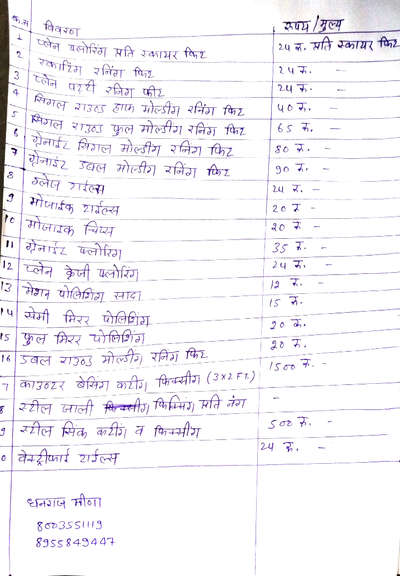 क्र.म विवरण रूपये/मूल्य
1 प्लेन फ्लोरिंग प्रति स्कायर फिट 24 रू. प्रति स्कायर फिट
2 स्काटिंग रनिंग फिट 24 रू. –
3 प्लेन पट्टी रनिंग फीट 24 रू. –
4 सिंगल राउण्ड हाफ मोल्डींग रनिंग फिट 40 रू. –
5 सिंगल राउण्ड फुल मोल्डींग रनिंग फिट 65 रू. –
6 ग्रेनाईट सिंगल मोल्डींग रनिंग फिट 80 रू. –
7 ग्रेनाईट डबल मोल्डींग रनिंग फिट 90 रू. –
8 ग्लेज टाईल्स 24 रू. –
9 मोजाईक टाईल्स 20 रू –
10 मोजाइक चिप्स 20 रू –
11 ग्रेनाईट फ्लोरिंग 35 रू. –
12 प्लेन क्रेजी फ्लोरिंग 24 रू. –
13 मेशन पोलिशिंग सादा 12 रू. –
14 सेमी मिरर पोलिशिंग 15 रू.
15 फुल मिरर पोलिशिंग 20 रू.
16 डबल राउण्ड मोल्डींग रनिंग फिट 20 रू.
7 काउण्टर बेसिंग कटींग फिक्सींग (3x2 Ft) 1500 रू. –
8 स्टील जाली फिक्सिंग प्रति नंग –
9 स्टील सिंक कटींग व फिक्सींग 500 रू. –
0 वेस्ट्रीफाई टाईल्स 24 रू. –
धनराज मीणा
8003551119
8955849447